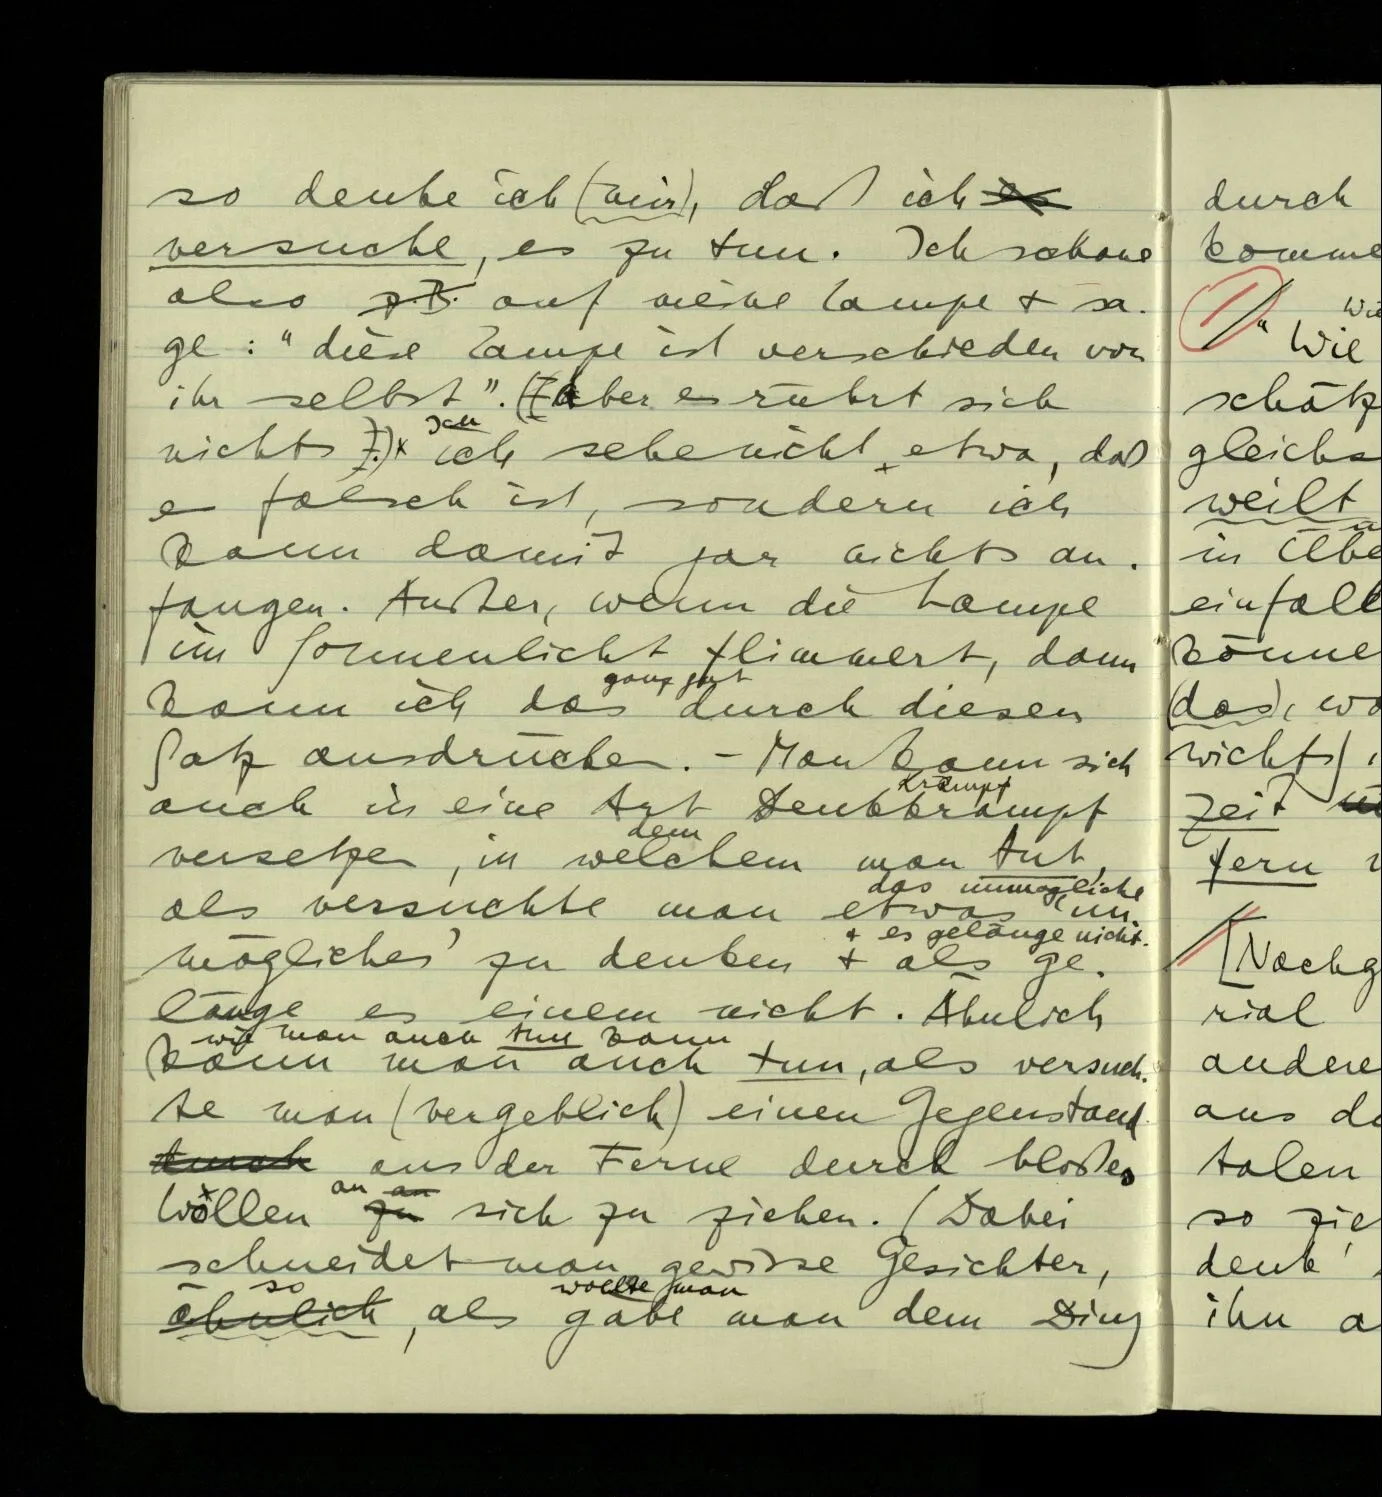 so denke ich (mir), daß ich es
versuche, es zu tun. Ich schaue
also z.B. auf meine Lampe + sa-
ge: "diese Lampe ist verschieden von
ihr selbst". (Aber es rührt sich
nichts.)
Ich
ich sehe nicht etwa, daß
es falsch ist, sondern ich
kann damit gar nichts an-
fangen. Außer, wenn die Lampe
im Sonnenlicht flimmert, dann
ganz gut
kann ich das durch diesen
Satz ausdrücken. – Man kann sich
Krampf
auch in eine Art Denkkrampf
dem
versetzen, in welchem man tut,
das unmögliche
als versuchte man etwas un-
+ es gelänge nicht.
mögliches zu denken + als ge-
länge es einem nicht. Ähnlich
wie man auch tun kann
kann man auch tun, als versuch-
te man (vergeblich) einen Gegenstand
durch aus der Ferne durch bloßes
an an
Wollen zu sich zu ziehen. (Dabei
schneidet man gewisse Gesichter,
so wollte man
ähnlich, als gäbe man dem Ding
durch
komme
wie
1) "Wie
schätz
gleichs
weilt
in Übe
einfall
könne
(das), wa
nichts)
zeit
fern
[Nachg
rial
andere
aus de
talen
so zie
denk'
ihn a